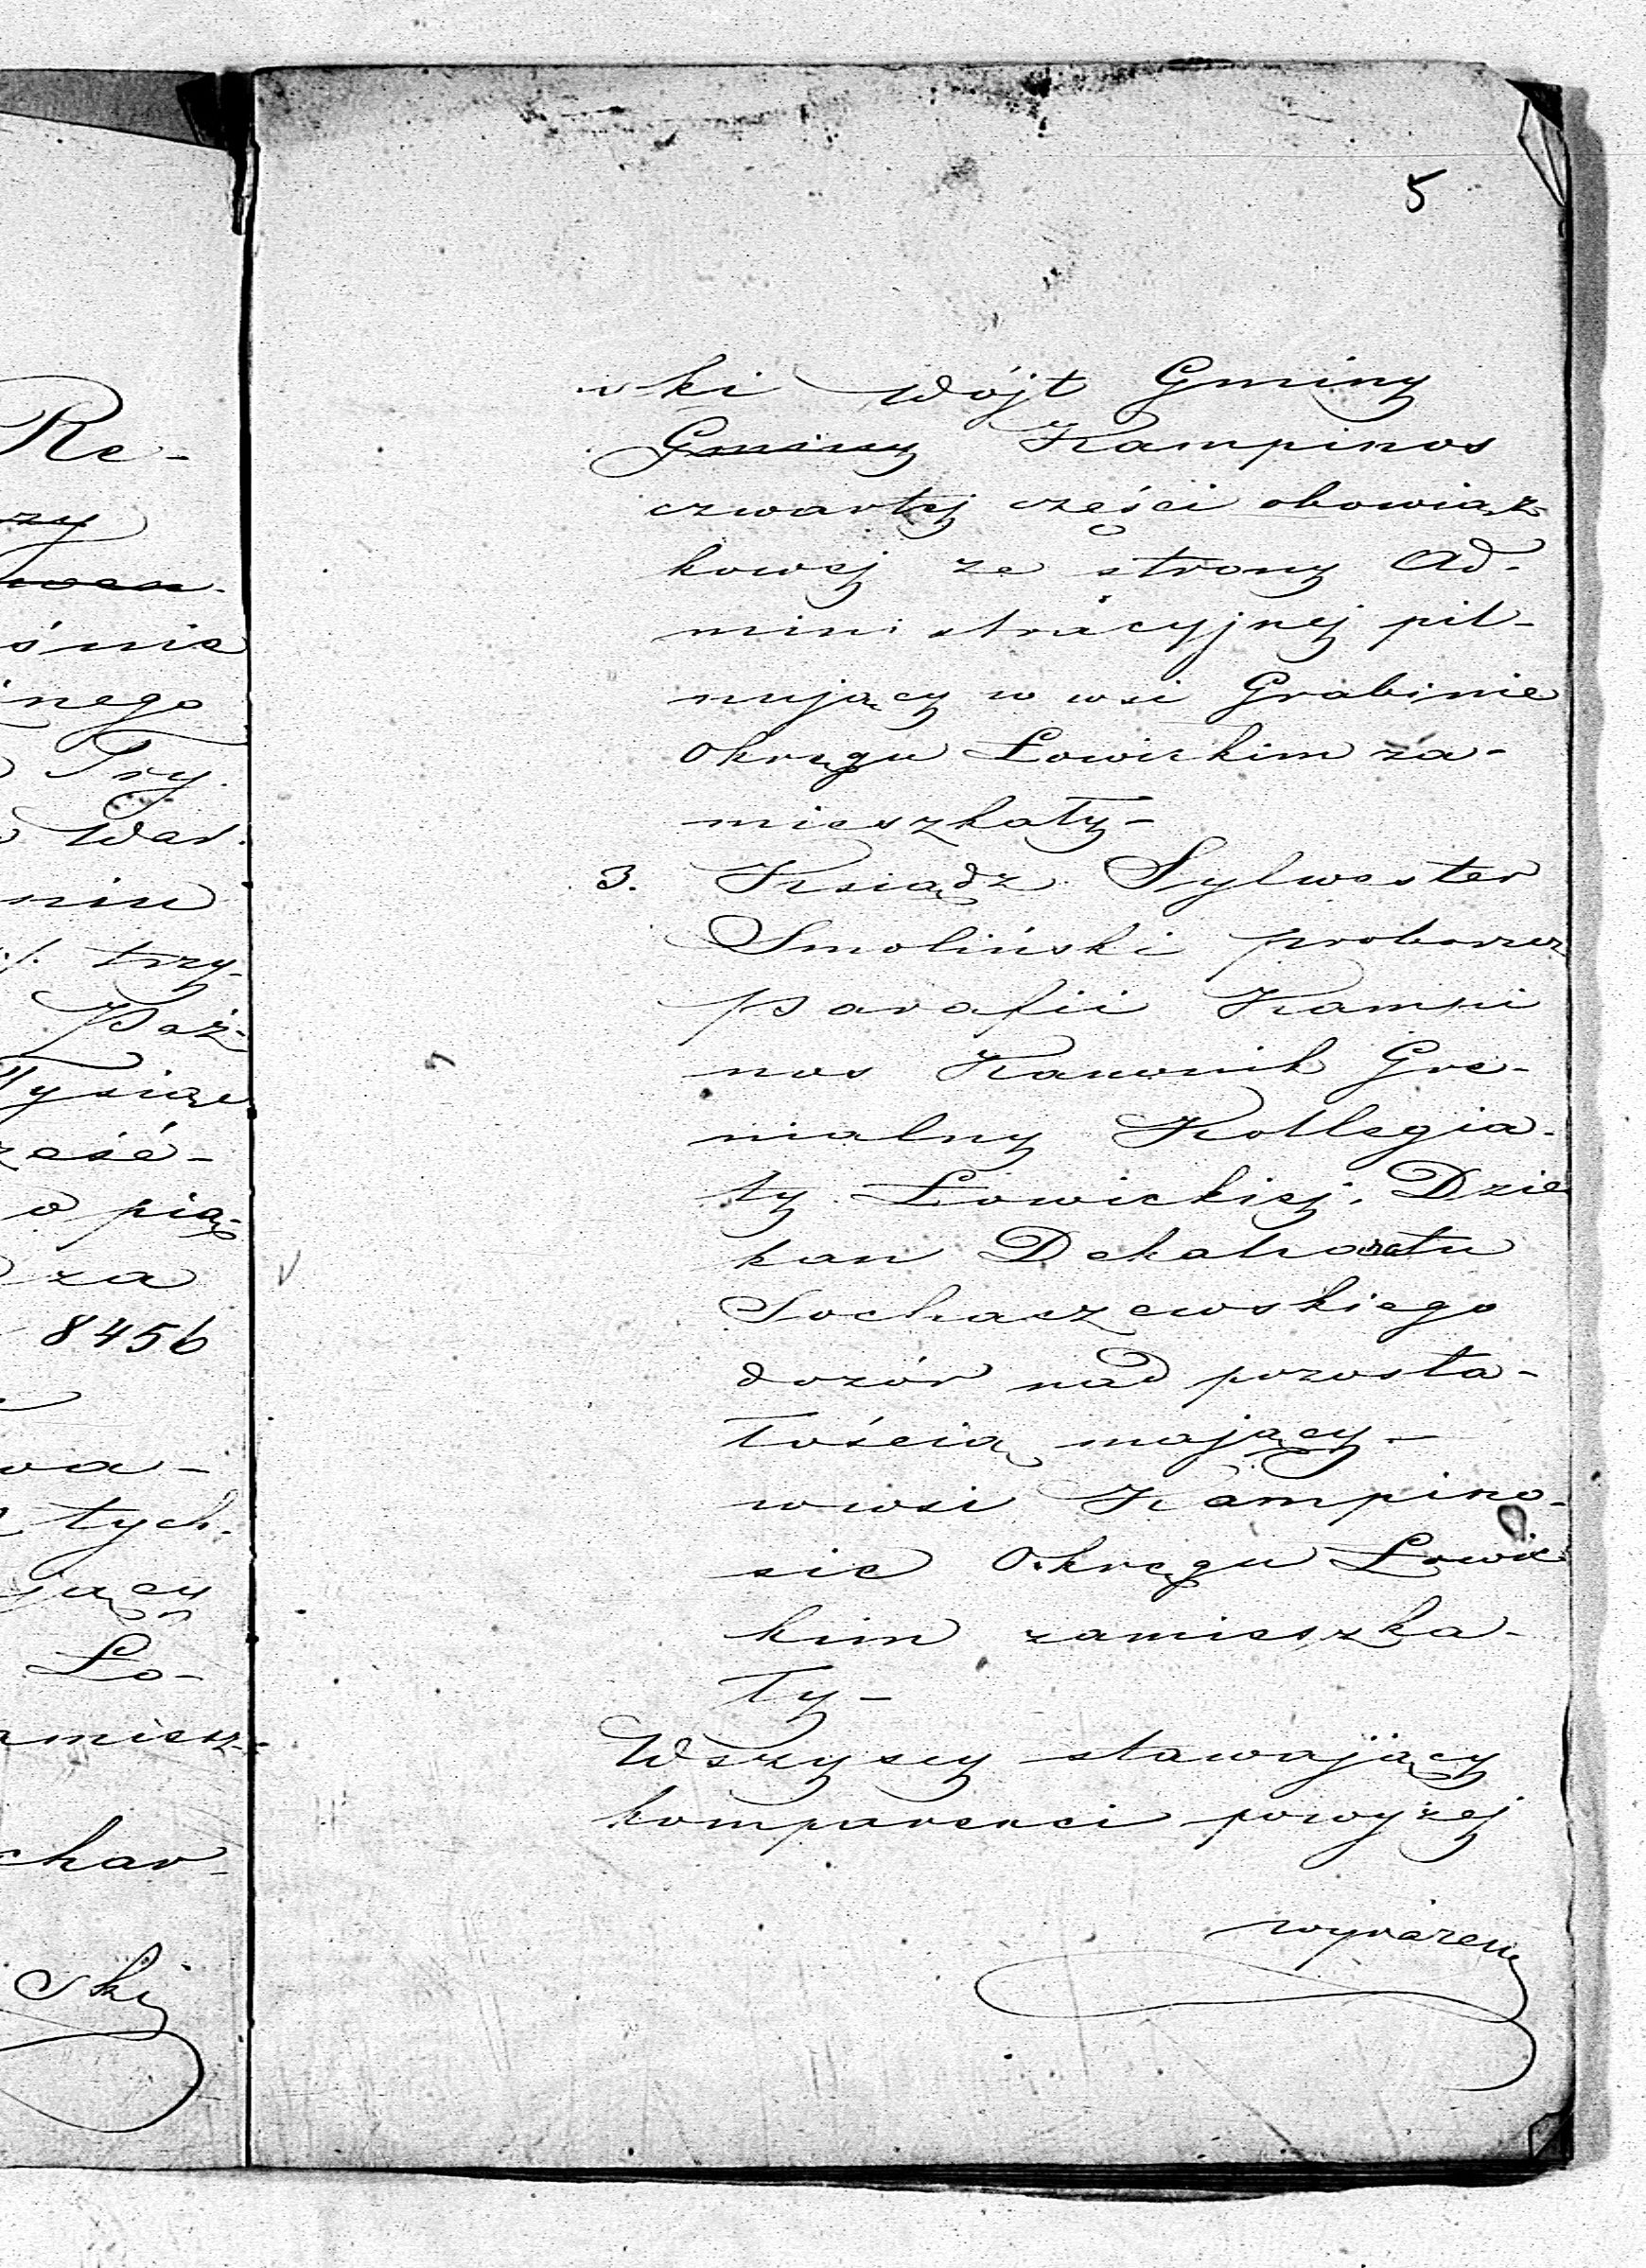 Re-
zy
śnie
inego
Try.
War.
niu
trzy-
Paź-
Tysiąc
ześć-
o pią-
za
8456
wa-
tych-
jący
Ło-
amiesz-
char-
ski
5
wki Wójt Gminy
Gminy Kampinos
czwartej części obowiąz-
kowej ze strony Ad-
ministracyjnej pil-
nujący w wsi Grabinie
Okręgu Łowickim za-
mieszkały-
3. Ksiądz Sylwester
Smoliński proboszcz
Parafii Kampi
nos Kanonik Gre-
mialny Kollegia-
ty Łowickiej, Dzie
kan Dekanatu
Sochaczewskiego
dozór nad pozosta-
łością mający-
w wsi Kampino-
sie Okręgu Łowic
kim zamieszka-
ły-
Wszyscy stawający
komparenci powyżej
wyrażeni